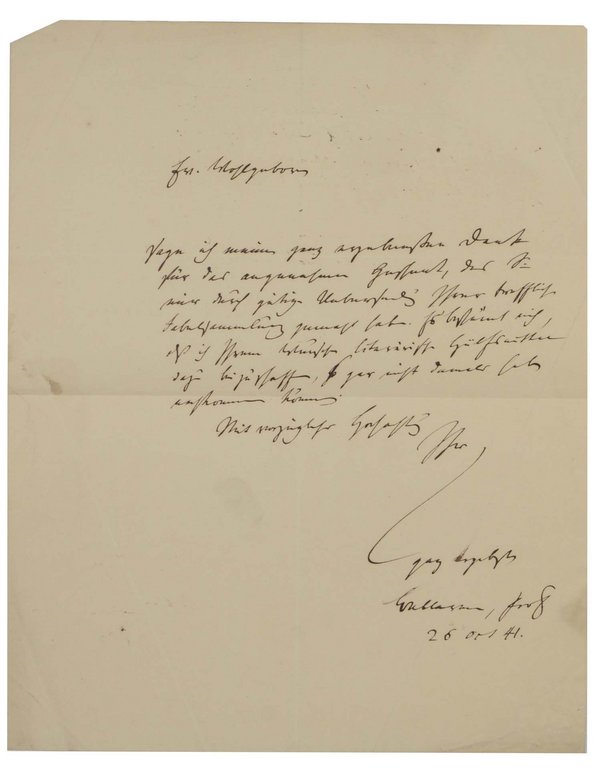 Ew. Wohlgeboren
sage ich meinen ganz ergebensten Dank
für das angenehme Geschenk, das Sie
mir durch gütige Uebersendg Ihrer trefflichen
Fabelsammlung gemacht haben. Es beschämt mich,
dß ich Ihrem Wunsche literärische Hülfsmittel
dazu beizuschaffen, gar nicht damals habe
nachkommen können.
Mit vorzüglicher Hochachtg
Ihr
ganz ergebenster
Prof
26 Oct 41.